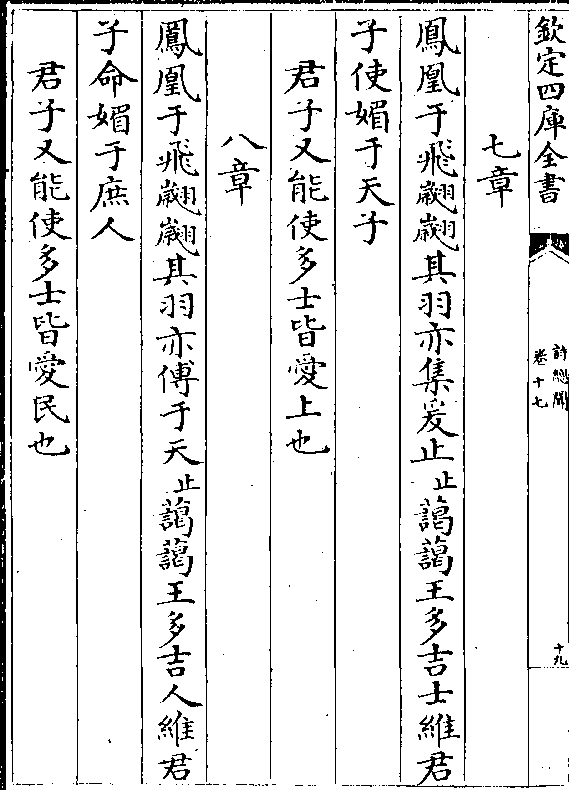 欽定四庫全書
詩總聞
卷十七
十九
七章
鳳凰于飛翽翽其羽亦集爰止止藹藹王多吉士維君
子使媚于天子
君子又能使多士皆愛上也
八章
鳳凰于飛翽翽其羽亦傅于天止藹藹王多吉人維君
子命媚于庶人
君子又能使多士皆愛民也